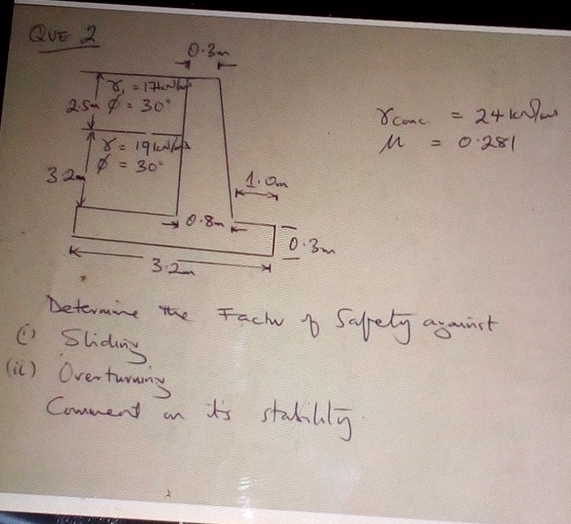 QUE 2
0.3m
γ₁ = 17kN/m
2.5m ϕ = 30°
γconc = 24 kN/m
γ = 19kN/m
μ = 0.281
ϕ = 30°
3.2m
1.0m
0.8m
0.3m
3.2m
Determine the Factor of Safety against
(i) Sliding
(ii) Overturning
Comment on its stability.